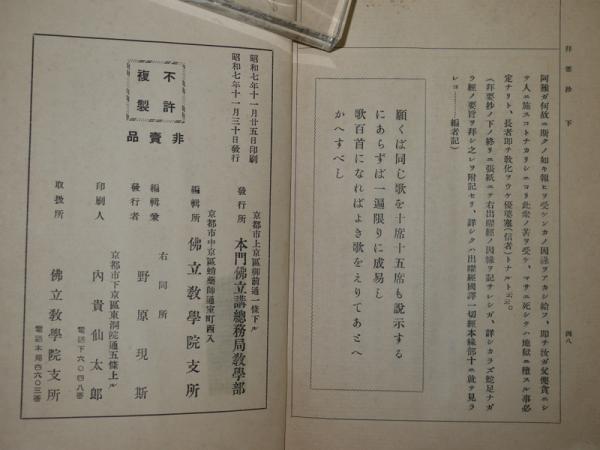 拜要抄　下
四八
阿難ガ何故ニ斯クノ如キ報ヒヲ受ケンカノ因縁ヲアカシ給フ、即チ汝ガ父慳貪ニシ
テ人ニ施スコトナカリシニヨリ此衆ノ苦ヲ受ケ、マサニ死シテハ地獄ニ堕スル事必
定ナリト、長者即チ敎化ヲウケ優婆塞(信者)トナルト云云。
(拜要抄ノ下ノ終リニ張紙ニテ右出曜經ノ因縁ヲ記サレシガ、詳シカラズ蛇足ナガ
ラ經ノ要旨ヲ拜シ之レヲ附記セリ、詳シクハ出曜經國譯一切經本縁部十ニ就テ見ラ
レヨ……編者記)
願くば同じ歌を十席十五席も說示する
にあらずば一遍限りに成易し
歌百首になればよき歌をえりてあとへ
かへすべし
昭和七年十一月廿五日印刷
昭和七年十一月三十日發行
不許
複製
非賣品
京都市上京區御前通一條下ル
發行所　本門佛立講總務局敎學部
京都市中京區蛸藥師通室町西入
編輯所　佛立敎學院支所
右同所
編輯兼
發行者　野原現斯
京都市下京區東洞院通五條上ル
印刷人　內貴仙太郎
電話下六〇四八番
取扱所　佛立敎學院支所
電話本局西六〇三番